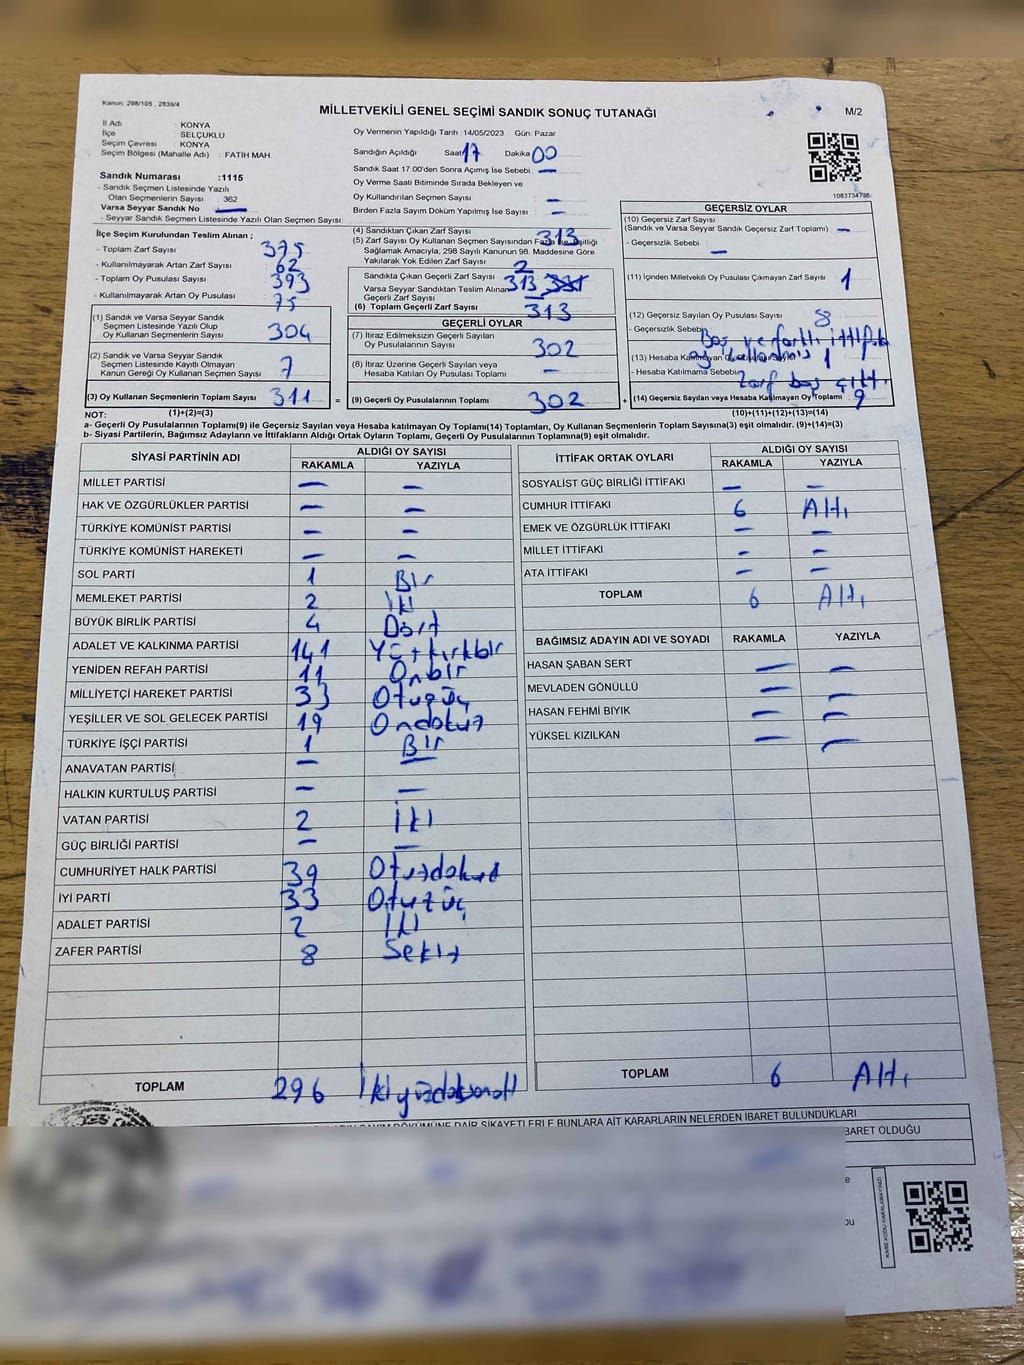 Kanun: 298/105 , 2839/4
MİLLETVEKİLİ GENEL SEÇİMİ SANDIK SONUÇ TUTANAĞI
M/2
İl Adı : KONYA
İlçe : SELÇUKLU
Seçim Çevresi : KONYA
Seçim Bölgesi (Mahalle Adı) : FATİH MAH.
Oy Vermenin Yapıldığı Tarih : 14/05/2023 Gün: Pazar
Sandığın Açıldığı Saat 17 Dakika 00
Sandık Saat 17:00'den Sonra Açımış İse Sebebi : —
Oy Verme Saati Bitiminde Sırada Bekleyen ve
Oy Kullandırılan Seçmen Sayısı : —
Birden Fazla Sayım Döküm Yapılmış İse Sayısı : —
1083734796
Sandık Numarası :1115
- Sandık Seçmen Listesinde Yazılı
Olan Seçmenlerin Sayısı : 362
Varsa Seyyar Sandık No —
- Seyyar Sandık Seçmen Listesinde Yazılı Olan Seçmen Sayısı :
İlçe Seçim Kurulundan Teslim Alınan ;
- Toplam Zarf Sayısı : 375
- Kullanılmayarak Artan Zarf Sayısı : 62
- Toplam Oy Pusulası Sayısı : 393
- Kullanılmayarak Artan Oy Pusulası : 75
(1) Sandık ve Varsa Seyyar Sandık
Seçmen Listesinde Yazılı Olup
Oy Kullanan Seçmenlerin Sayısı : 304
(2) Sandık ve Varsa Seyyar Sandık
Seçmen Listesinde Kayıtlı Olmayan
Kanun Gereği Oy Kullanan Seçmen Sayısı : 7
(3) Oy Kullanan Seçmenlerin Toplam Sayısı : 311 =
(4) Sandıktan Çıkan Zarf Sayısı : 313
(5) Zarf Sayısı Oy Kullanan Seçmen Sayısından Fazla İse Eşitliği
Sağlamak Amacıyla, 298 Sayılı Kanunun 98. Maddesine Göre
Yakılarak Yok Edilen Zarf Sayısı : 2
Sandıkta Çıkan Geçerli Zarf Sayısı : 313
Varsa Seyyar Sandıktan Teslim Alınan
Geçerli Zarf Sayısı : —
(6) Toplam Geçerli Zarf Sayısı : 313
GEÇERLİ OYLAR
(7) İtiraz Edilmeksizin Geçerli Sayılan
Oy Pusulalarının Sayısı : 302
(8) İtiraz Üzerine Geçerli Sayılan veya
Hesaba Katılan Oy Pusulası Toplamı : —
(9) Geçerli Oy Pusulalarının Toplamı : 302 +
GEÇERSİZ OYLAR
(10) Geçersiz Zarf Sayısı
(Sandık ve Varsa Seyyar Sandık Geçersiz Zarf Toplamı) : —
- Geçersizlik Sebebi : —
(11) İçinden Milletvekili Oy Pusulası Çıkmayan Zarf Sayısı : 1
(12) Geçersiz Sayılan Oy Pusulası Sayısı : 8
- Geçersizlik Sebebi : Boş ve farklı ittifak
(13) Hesaba Katılmayan 1
- Hesaba Katılmama Sebebi : Zarf boş çıktı.
(14) Geçersiz Sayılan veya Hesaba Katılmayan Oy Toplamı : 9
NOT: (1)+(2)=(3) (10)+(11)+(12)+(13)=(14)
a- Geçerli Oy Pusulalarının Toplamı(9) ile Geçersiz Sayılan veya Hesaba katılmayan Oy Toplamı(14) Toplamları, Oy Kullanan Seçmenlerin Toplam Sayısına(3) eşit olmalıdır. (9)+(14)=(3)
b- Siyasi Partilerin, Bağımsız Adayların ve İttifakların Aldığı Ortak Oyların Toplamı, Geçerli Oy Pusulalarının Toplamına(9) eşit olmalıdır.
SİYASİ PARTİNİN ADI ALDIĞI OY SAYISI
RAKAMLA YAZIYLA
MİLLET PARTİSİ — —
HAK VE ÖZGÜRLÜKLER PARTİSİ — —
TÜRKİYE KOMÜNİST PARTİSİ — —
TÜRKİYE KOMÜNİST HAREKETİ — —
SOL PARTİ 1 Bir
MEMLEKET PARTİSİ 2 İki
BÜYÜK BİRLİK PARTİSİ 4 Dört
ADALET VE KALKINMA PARTİSİ 141 Yüzkırkbir
YENİDEN REFAH PARTİSİ 11 Onbir
MİLLİYETÇİ HAREKET PARTİSİ 33 Otuzüç
YEŞİLLER VE SOL GELECEK PARTİSİ 19 Ondokuz
TÜRKİYE İŞÇİ PARTİSİ 1 Bir
ANAVATAN PARTİSİ — —
HALKIN KURTULUŞ PARTİSİ — —
VATAN PARTİSİ 2 İki
GÜÇ BİRLİĞİ PARTİSİ — —
CUMHURİYET HALK PARTİSİ 39 Otuzdokuz
İYİ PARTİ 33 Otuzüç
ADALET PARTİSİ 2 İki
ZAFER PARTİSİ 8 Sekiz
TOPLAM 296 İkiyüzdoksanaltı
İTTİFAK ORTAK OYLARI ALDIĞI OY SAYISI
RAKAMLA YAZIYLA
SOSYALİST GÜÇ BİRLİĞİ İTTİFAKI — —
CUMHUR İTTİFAKI 6 Altı
EMEK VE ÖZGÜRLÜK İTTİFAKI — —
MİLLET İTTİFAKI — —
ATA İTTİFAKI — —
TOPLAM 6 Altı
BAĞIMSIZ ADAYIN ADI VE SOYADI RAKAMLA YAZIYLA
HASAN ŞABAN SERT — —
MEVLADEN GÖNÜLLÜ — —
HASAN FEHMİ BIYIK — —
YÜKSEL KIZILKAN — —
TOPLAM 6 Altı
SAYIM DÖKÜMÜNE DAİR ŞİKAYETLERLE BUNLARA AİT KARARLARIN NELERDEN İBARET BULUNDUKLARI
İBARET OLDUĞU
KARE KODU KARALAMAYINIZ!